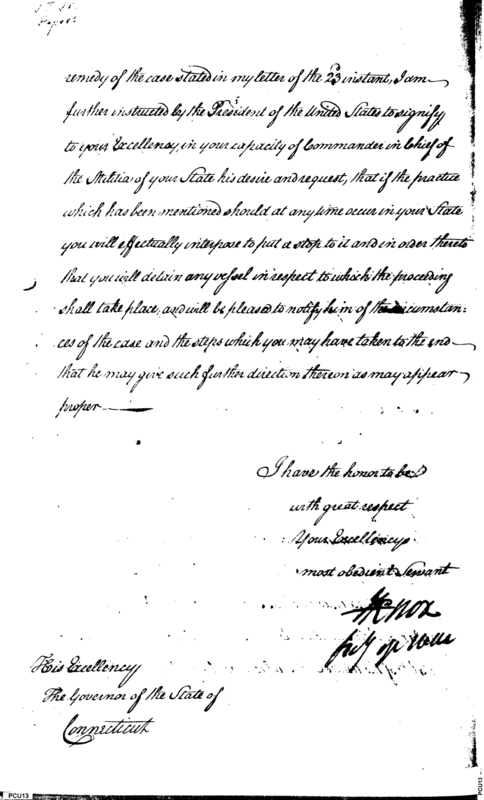 remedy of the case stated in my letter of the 23 instant, I am
further instructed by the President of the United States to signify
to your Excellency, in your capacity of Commander in Chief of
the Militia of your State his desire and request, that if the practice
which has been mentioned should at any time occur in your State
you will effectually interpose to put a stop to it and in order thereto
that you will detain any vessel in respect to which the proceeding
shall take place, and will be pleased to notify him of the circumstan:
ces of the case and the steps which you may have taken to the end
that he may give such further direction thereon as may appear
proper
I have the honor to be
with great respect
Your Excellencys
most obedient Servant
HKnox
Secy of War
His Excellency
The Governor of the State of
Connecticut
PCU13
PCU13